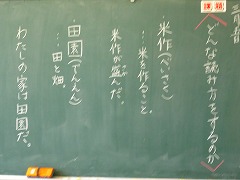 課題
どんな読み方をするのか
米作(べいさく)
…米を作ること。
米作が盛んだ。
田園(でんえん)
…田と畑。
わたしの家は田園だ。